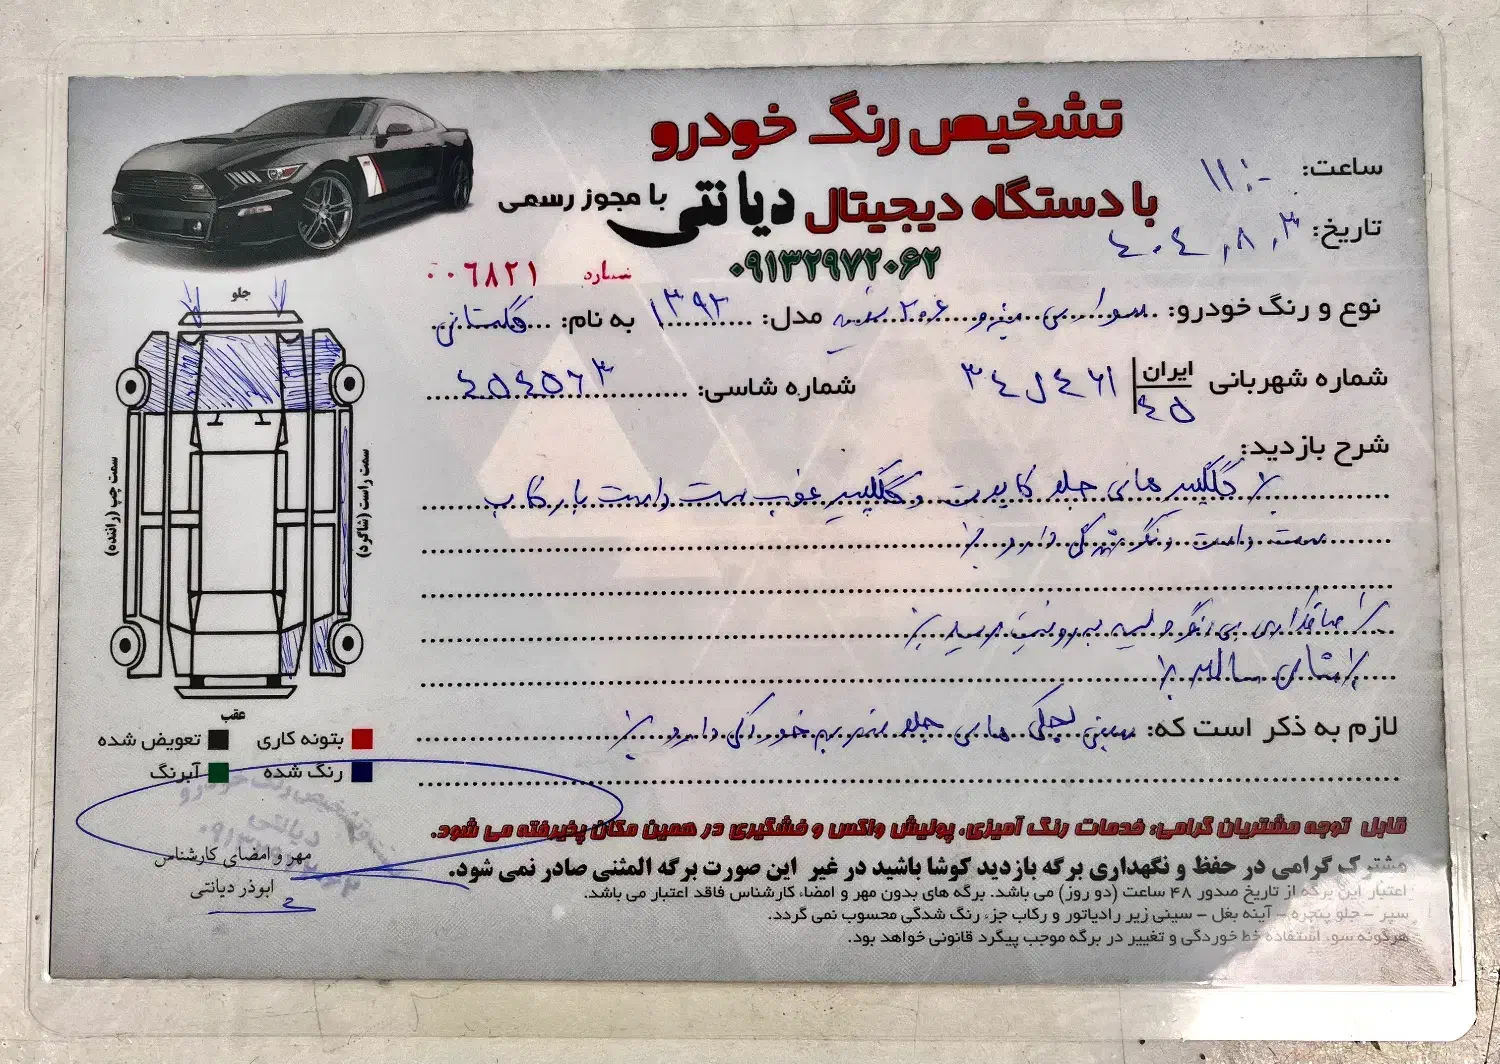 تشخیص رنگ خودرو
با دستگاه دیجیتال دیانتی با مجوز رسمی
۰۹۱۳۲۹۷۲۰۶۲
ساعت: ۱۱:۰۰
تاریخ: ۴۰۴,۸,۳
شماره ۰۰۶۸۲۱
نوع و رنگ خودرو: سواری مدل: ۱۳۹۲ به نام: گلستانی
شماره شهربانی ایران ۴۵ ۴۶۱ ل ۳۴ شماره شاسی: ۴۵۴۵۶۳
شرح بازدید:
گلگیر های جلو کاپوت و گلگیر عقب سمت راست با رکاب
سمت راست رنگ شدگی دارد
صافکاری بی رنگ
شاسی سالم
لازم به ذکر است که: سینی های جلو دارد
جلو
سمت چپ (راننده)
سمت راست (شاگرد)
عقب
بتونه کاری تعویض شده
رنگ شده آبرنگ
تشخیص رنگ خودرو
دیانتی
مهر و امضای کارشناس
ابوذر دیانتی
قابل توجه مشتریان گرامی: خدمات رنگ آمیزی، پولیش واکس و خشگیری در همین مکان پذیرفته می شود.
مشترک گرامی در حفظ و نگهداری برگه بازدید کوشا باشید در غیر این صورت برگه المثنی صادر نمی شود.
اعتبار این برگه از تاریخ صدور ۴۸ ساعت (دو روز) می باشد. برگه های بدون مهر و امضاء کارشناس فاقد اعتبار می باشد.
سپر - جلو پنجره - آینه بغل - سینی زیر رادیاتور و رکاب جزء رنگ شدگی محسوب نمی گردد.
هرگونه سوء استفاده خط خوردگی و تغییر در برگه موجب پیگرد قانونی خواهد بود.